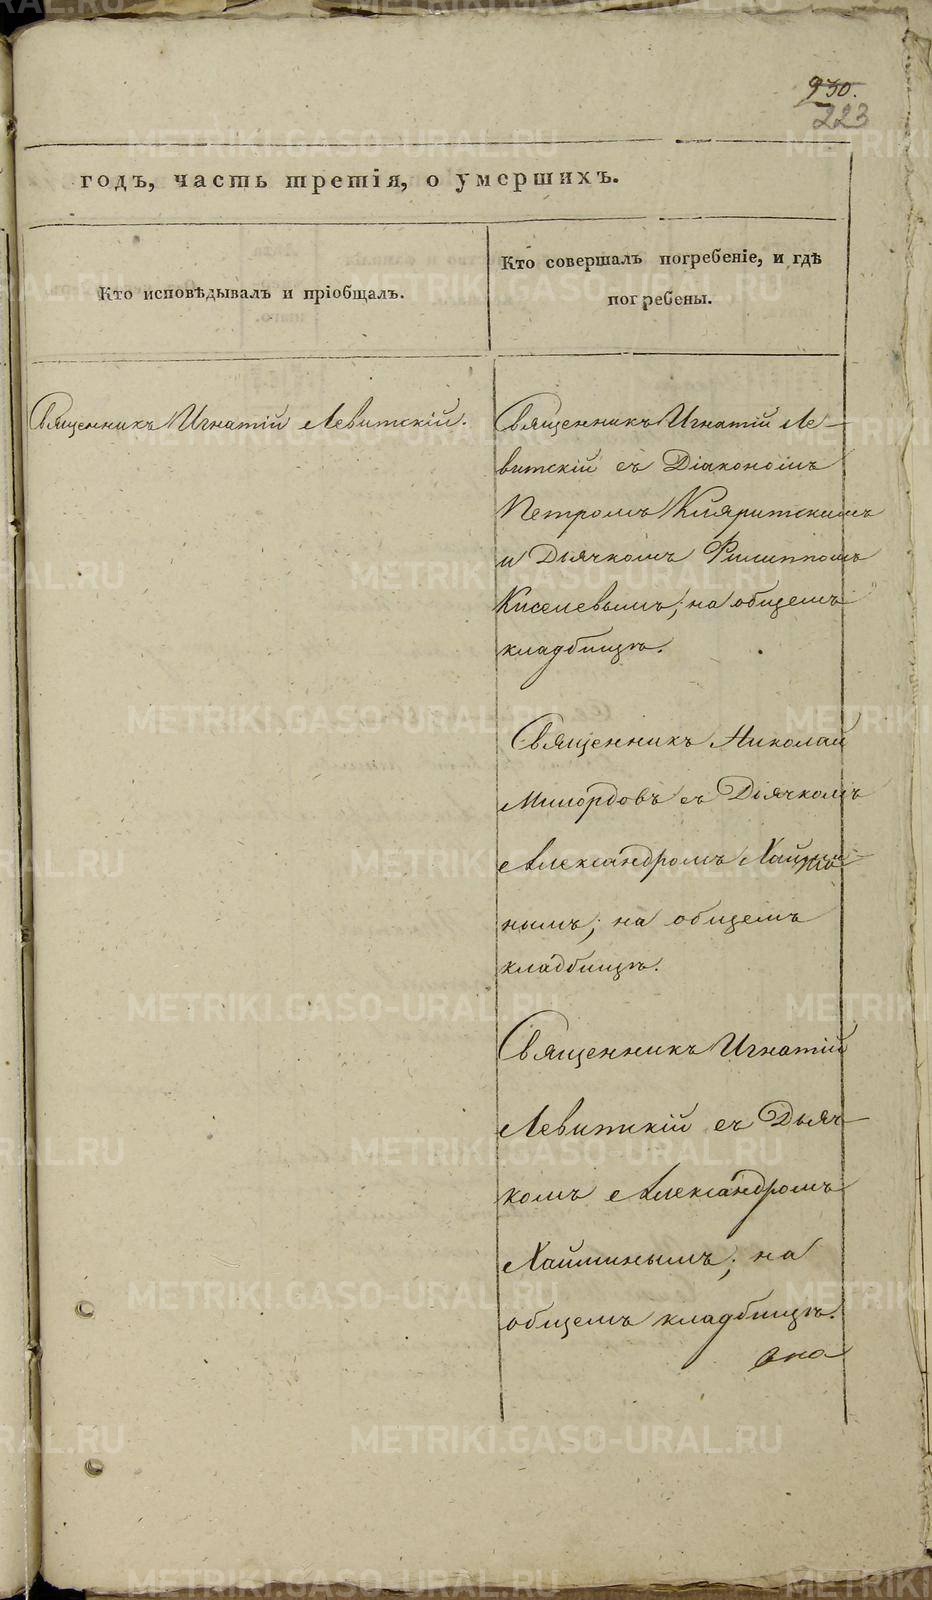 930.
223
годъ, часть третія, о умершихъ.
Кто исповѣдывалъ и пріобщалъ.
Кто совершалъ погребеніе, и гдѣ
погребены.
Священникъ Игнатій Левитскій.
Священникъ Игнатій Ле-
витскій съ Діакономъ
Петромъ
и Дьячкомъ Филиппомъ
Киселевымъ; на общемъ
кладбищѣ.
Священникъ Николай
Милордовъ съ Дьячкомъ
Александромъ
нымъ; на общемъ
кладбищѣ.
Священникъ Игнатій
Левитскій съ Дьяч-
комъ Александромъ
Хайминымъ; на
общемъ кладбищѣ.
METRIKI.GASO-URAL.RU